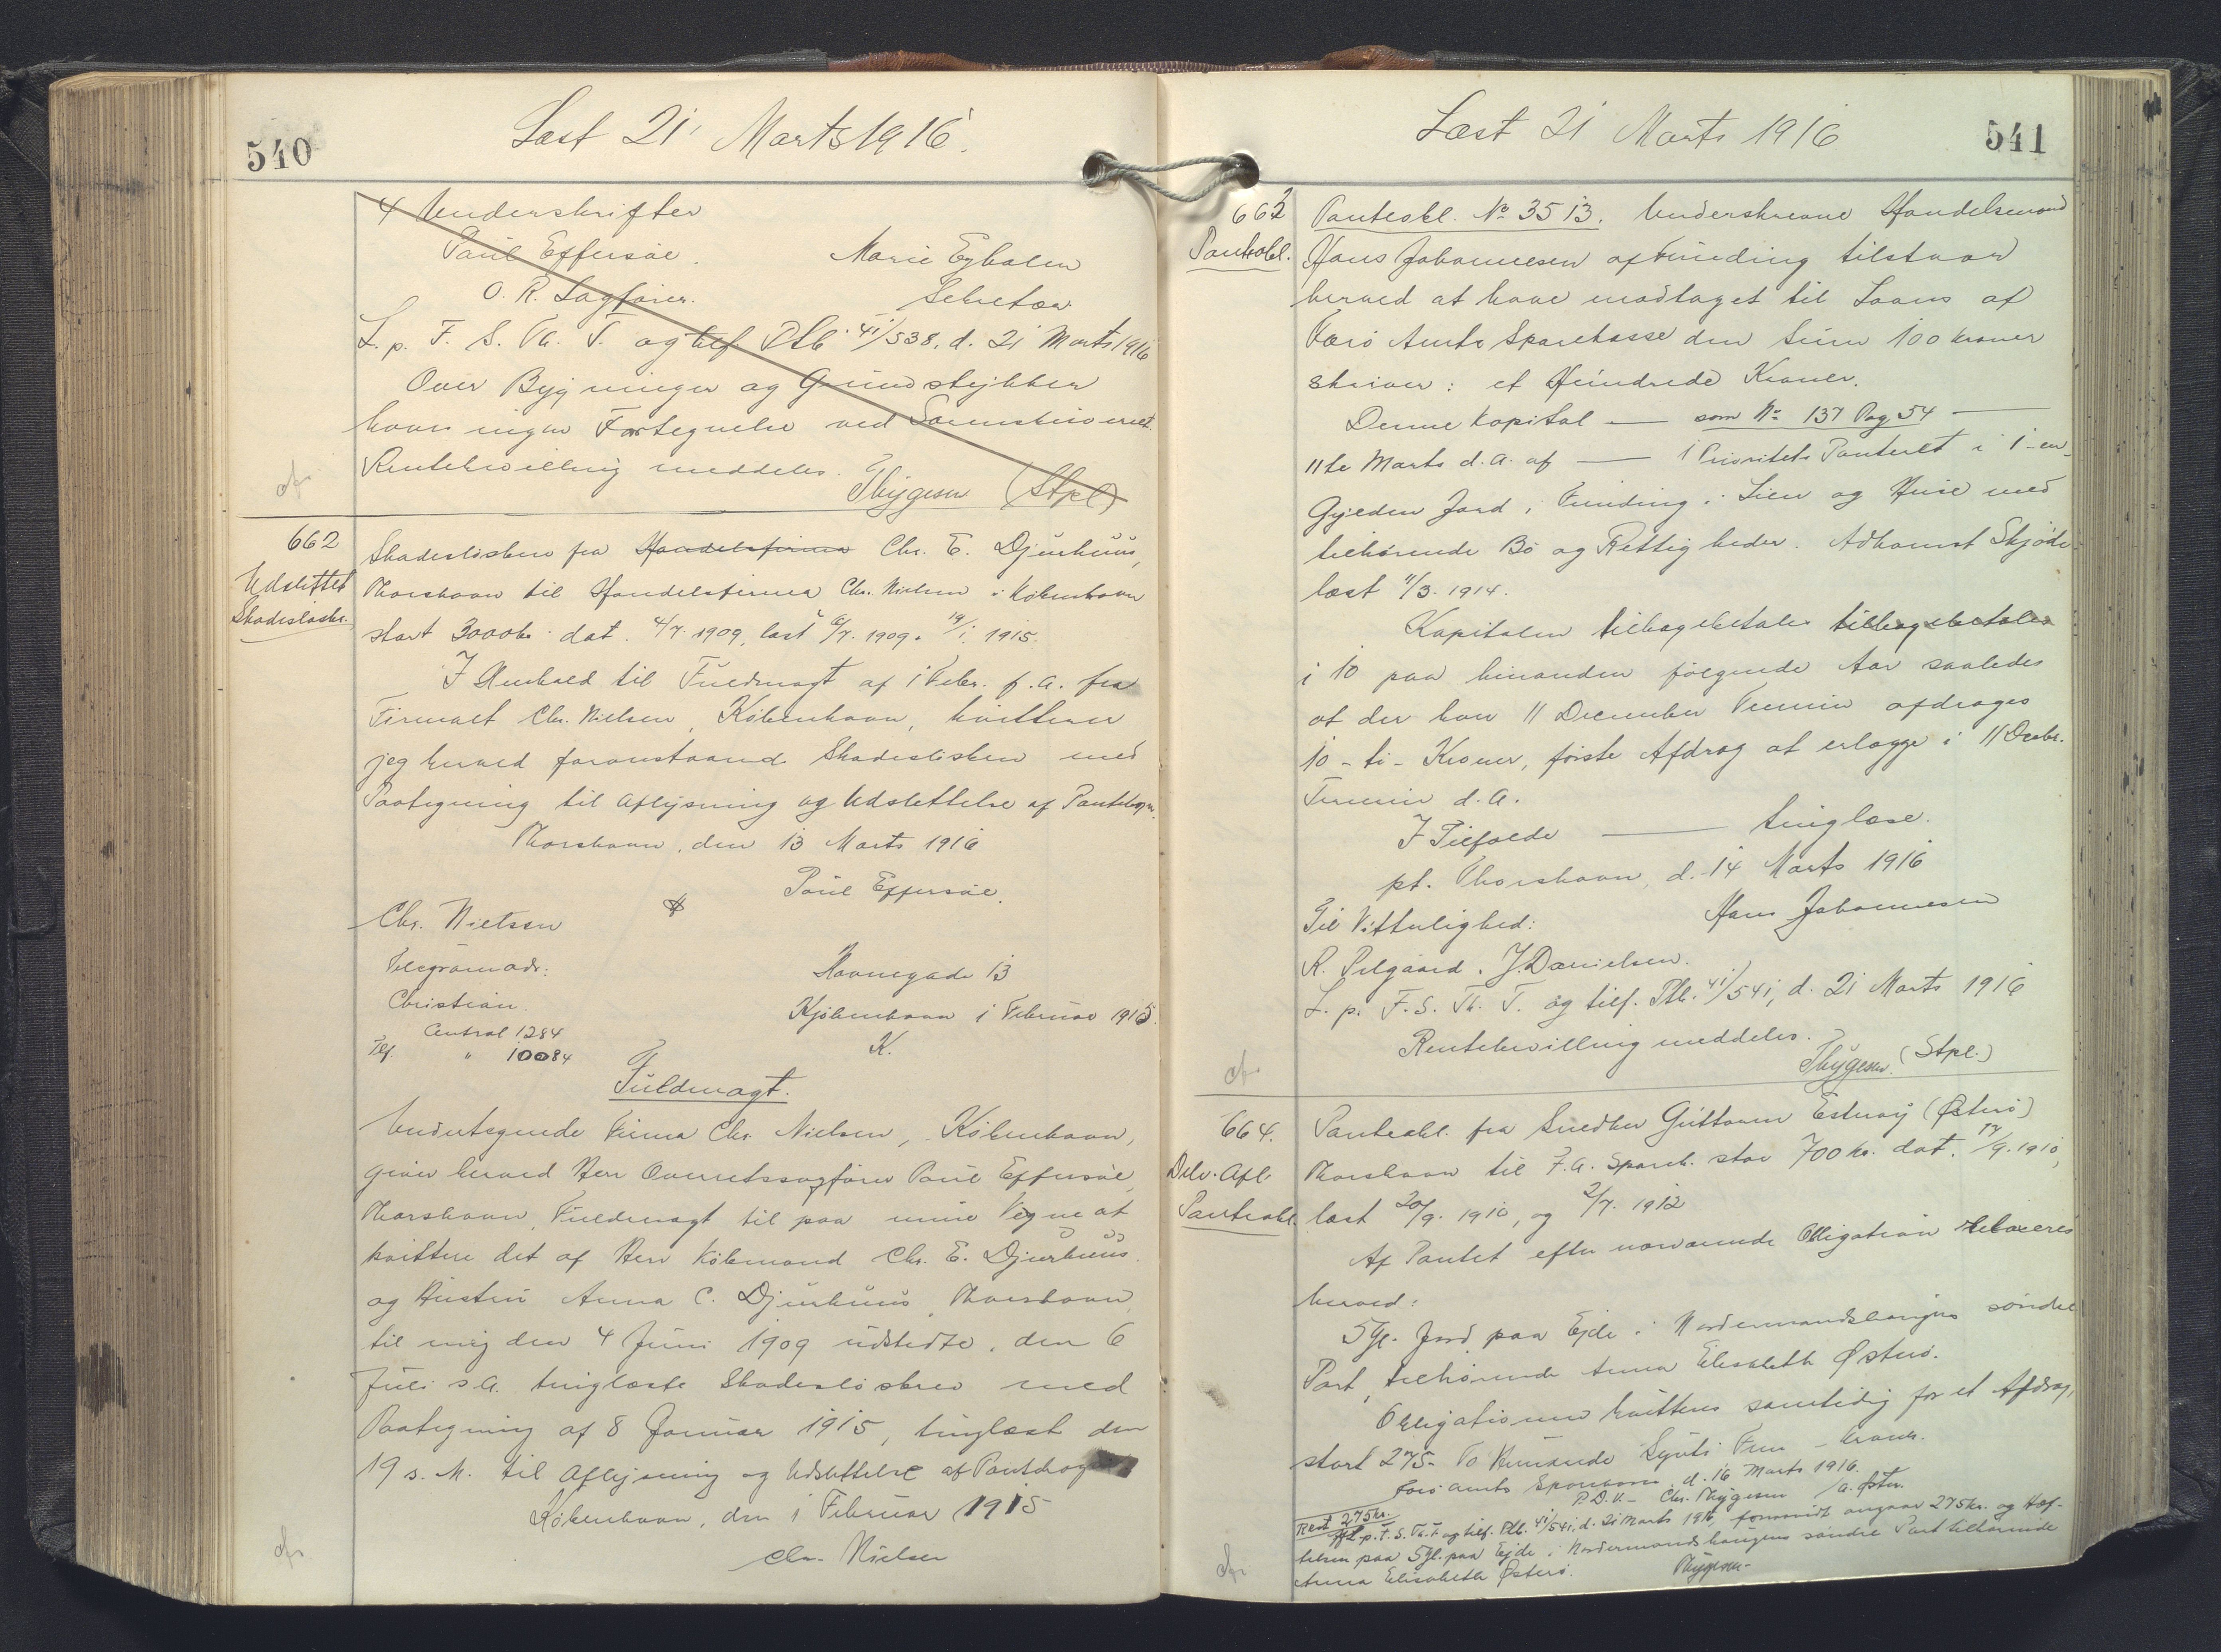 540
Læst 21' Marts 1916.
4 Underskrifter
Paul Effersøe. Marie Egholm
O. R. Sagfører. Sekretær
L. p. F. S. Th. T. og tilf Ptb. 41/538. d. 21 Marts 1916
Over Bygninger og Grundstykker
haves ingen Fortegnelse ved Sorenskriveriet.
Rentebevilling meddeles. Thygesen (Stpl)
662
Udslettet
Skadesløsbr.
Skadesløsbrev fra Handelsfirma Chr. E. Djurhuus,
Thorshavn til Handelsfirma Chr. Nielsen i København
stort 3000 kr. dat. 4/7. 1909, læst 6/7. 1909. 19/1. 1915.
I Henhold til Fuldmagt af 1 Febr. f. A. fra
Firmaet Chr. Nielsen, København, kvitterer
jeg herved foranstaaende Skadesløsbrev med
Paategning til Aflysning og Udslettelse af Pantebogen.
Thorshavn, den 13 Marts 1916
Paul Effersøe.
Chr. Nielsen
Telegramadr: Havnegade 13
Christian. Kjøbenhavn 1 Februar 1915.
Central 1284 K.
Tlf. " 10084
Fuldmagt.
Undertegnede Firma Chr. Nielsen, København,
giver herved Herr Overretssagfører Paul Effersøe,
Thorshavn, Fuldmagt til paa mine Vegne at
kvittere det af Herr Købmand Chr. E. Djurhuus
og Hustru Anna C. Djurhuus, Thorshavn,
til mig den 4 Juni 1909 udstedte, den 6
Juli s. A. tinglæste Skadesløsbrev med
Paategning af 8 Januar 1915, tinglæst den
19 s. M. til Aflysning og Udslettelse af Pantebogen
København, den 1 Februar 1915
Chr. Nielsen
Læst 21 Marts 1916
541
662
Panteobl.
Panteobl. No 3513. Underskrevne Handelsmand
Hans Johannesen af Funding tilstaar
herved at have modtaget til Laans af
Færø Amts Sparekasse den Sum 100 Kroner
skriver: et Hundrede Kroner.
Denne Kapital — som No 137 Pag 54 —
11te Marts d. A. af — 1 Prioritets Panteret i 1 - en -
Gylden Jord i Funding i Lien og Huse med
tilhørende Bø og Rettigheder. Adkomst Skjøde
læst 11/3. 1914.
Kapitalen tilbagebetales tilbagebetales
i 10 paa hinanden følgende Aar saaledes
at der hver 11 December Termin afdrages
10 - ti - Kroner, første Afdrag at erlægge i 11 Decbr.
Termin d. A.
I Tilfælde — tinglæse.
pt. Thorshavn, d. 14 Marts 1916
Til Vitterlighed: Hans Johannesen
R. Pilgaard. J. Danielsen.
L. p. F. S. Th. T. og tilf. Ptb. 41/541, d. 21 Marts 1916
Rentebevilling meddeles.
Thygesen. (Stpl.)
664.
Delv. Afl.
Panteobl.
Panteobl. fra Snedker Guttorm Esturoy (Østerø)
Thorshavn til F. A. Spark. stor 700 kr. dat. 17/9. 1910,
læst 20/9. 1910, og 2/7. 1912
Af Pantet efter nærværende Obligation relaxeres
herved:
5 Gl. Jord paa Ejde i Nordermandshaugens søndre
Part, tilhørende Anna Elisabeth Østerø.
Obligationen kvitteres samtidig for et Afdrag,
stort 275 - To Hundrede Sytti Fem - Kroner.
Færø amts Sparekasse, d. 16 Marts 1916.
P. D. V. - Chr. Thygesen /A. Øster.
Rest 275 kr.
Afl. p. F. S. Th. T. og tilf. Ptb. 41/541, d. 21 Marts 1916, forsaavidt angaar 275 kr. og Hæf-
telsen paa 5 Gl. paa Ejde i Nordermandshaugens søndre Part tilhørende
Anna Elisabeth Østerø. Thygesen -